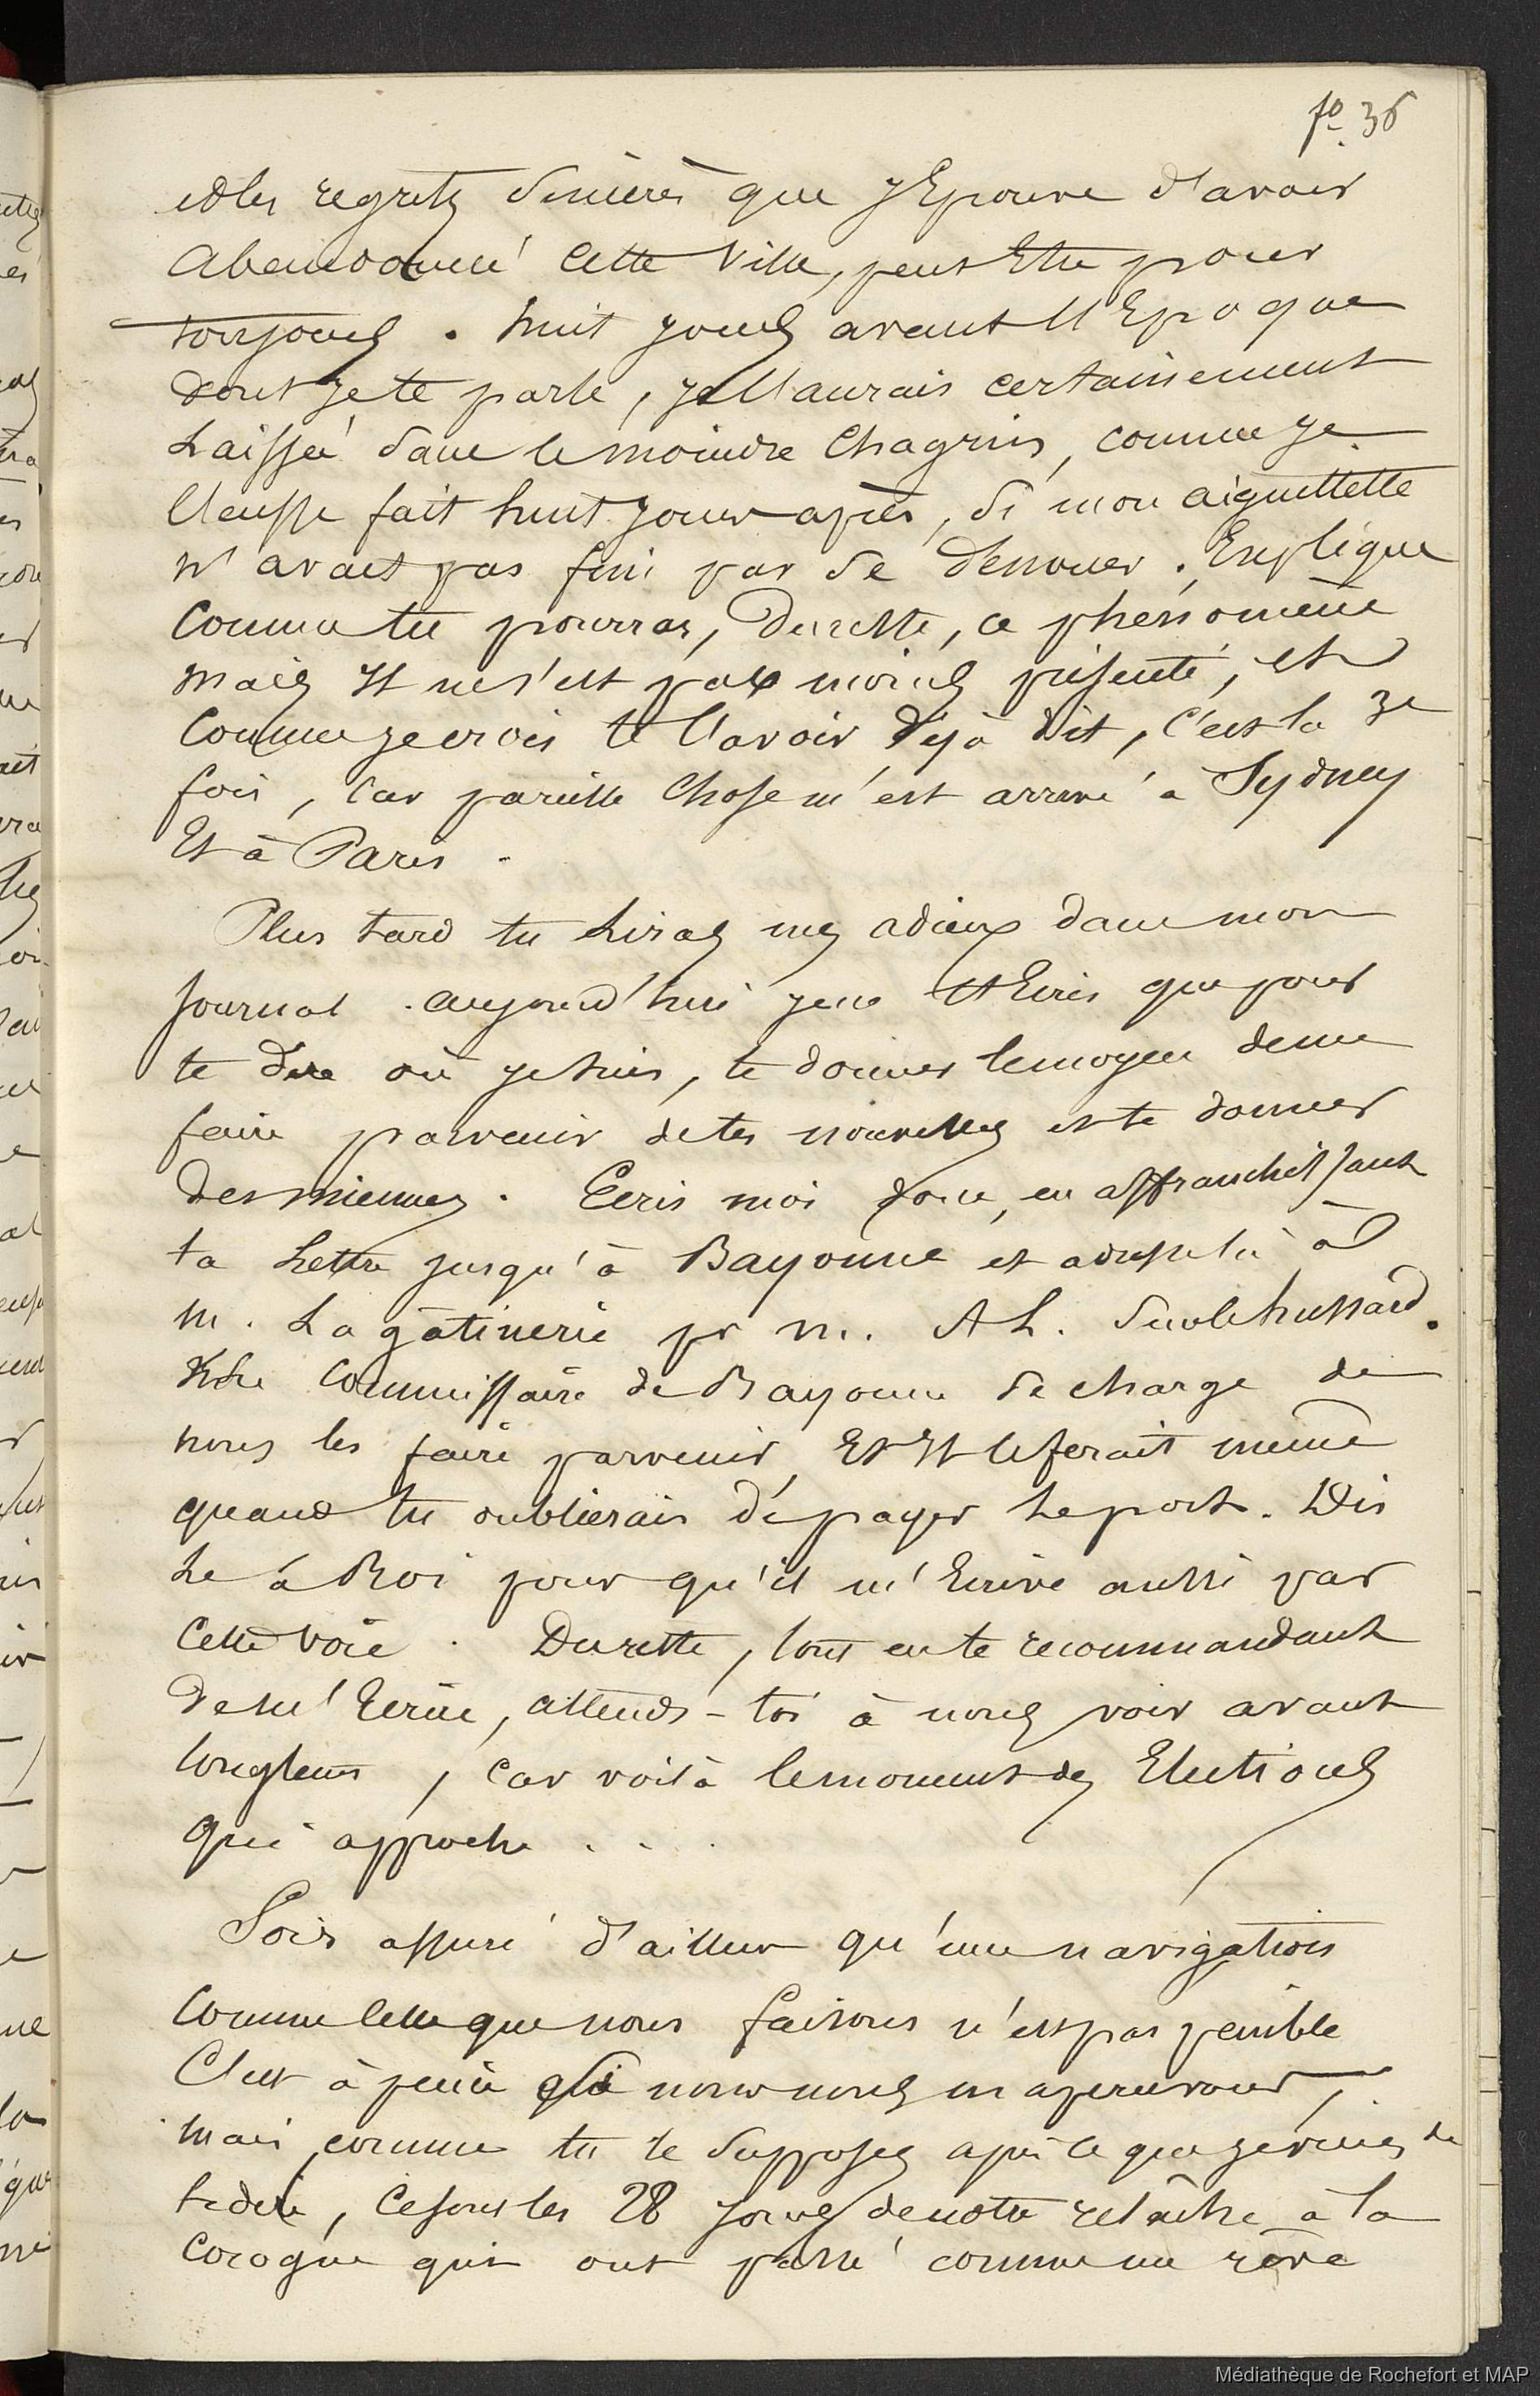 fo. 36
et les regrets sincères que j'Eprouve d'avoir
abandonné cette Ville, peut Etre pour
toujours. huit jours avant l'Epoque
dont je te parle, je l'aurais certainement
Laissée sans le moindre Chagrin, comme je
l'eusse fait huit jours après, si mon aiguillette
n'avait pas fini par se dénouer. Explique
comme tu pourras, Durette, ce phénomène
mais Il ne s'est pas moins présenté, et
comme je crois te l'avoir déjà dit, c'est la 3e
fois, car pareille chose m'est arrivé à Sydney
Et à Paris.
Plus tard tu Liras mes adieux dans mon
Journal. aujourd'hui je ne t'Ecris que pour
te dire où je suis, te donner le moyen de me
faire parvenir de tes nouvelles et te donner
des miennes. Ecris moi donc, en affranchissant
ta Lettre jusqu'à Bayonne et adresse la à
M. Lagatinerie pr M. A L. sur le hussard.
Mr le Commissaire de Bayonne se charge de
nous les faire parvenir, Et Il le ferait même
quand tu oublierais d'en payer le port. Dis
Le à Roi pour qu'il m'Ecrive aussi par
cette voie. Durette, tout en te recommandant
de m'Ecrire, attends-toi à nous voir avant
longtems, car voilà le moment des Elections
qui approche . . .
Sois assuré d'ailleurs qu'une navigation
comme celle que nous faisons n'est pas pénible
C'est à peine si nous nous en apercevons,
mais comme tu le supposes après ce que je viens de
te dire, ce sont les 28 jours de notre relâche à la
Corogne qui ont passé comme un rêve
Médiathèque de Rochefort et MAP